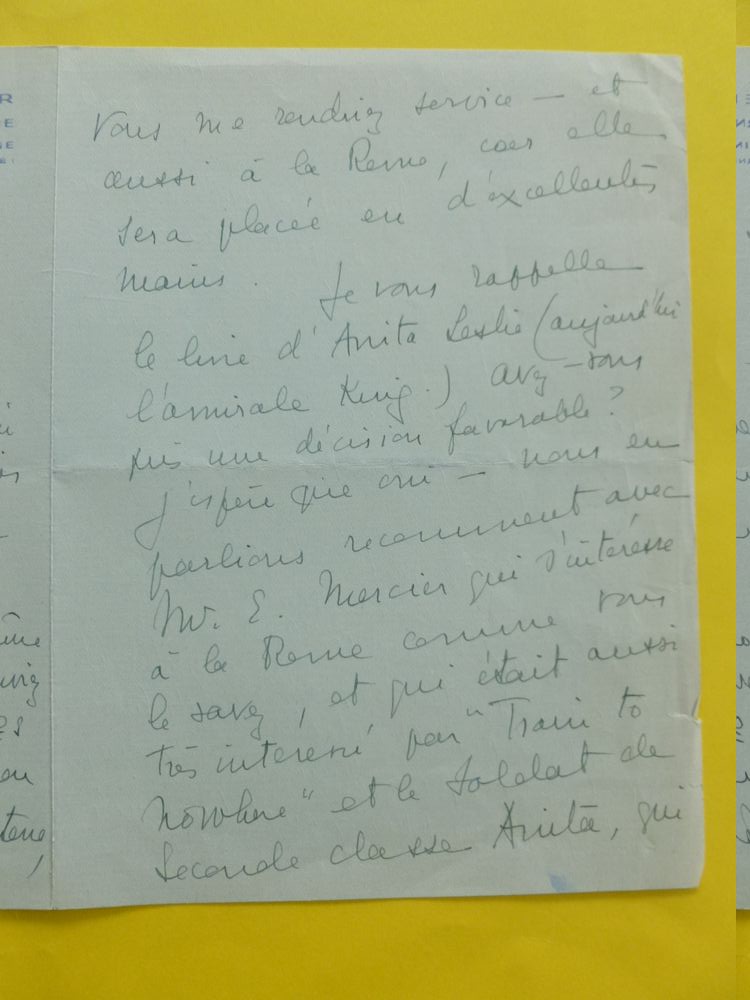 vous me rendriez service — et
aussi à la Revue, car elle
sera placée en d'excellentes
mains. Je vous rappelle
le livre d'Anita Leslie (aujourd'hui
l'amirale King.) avez-vous
pris une décision favorable?
j'espère que oui — nous en
parlions recemment avec
Mr. E. Mercier qui s'intéresse
à la Revue comme vous
le savez, et qui était aussi
très interessé par "Train to
Nowhere" et le Soldat de
Seconde classe Anita, qui